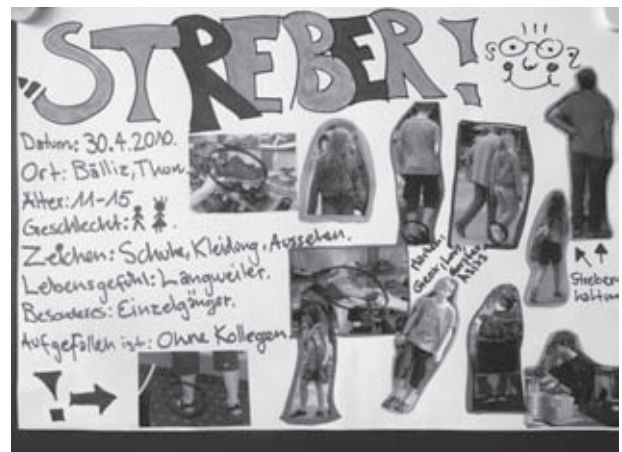 STREBER!
Datum: 30.4.2010.
Ort: Bälliz, Thun.
Alter: 11-15
Geschlecht:
Zeichen: Schuhe, Kleidung, Aussehen.
Lebensgefühl: Langweiler.
Besonderes: Einzelgänger.
Aufgefallen ist: Ohne Kollegen.
Marken:
Geox,
Asics
Streber
haltung